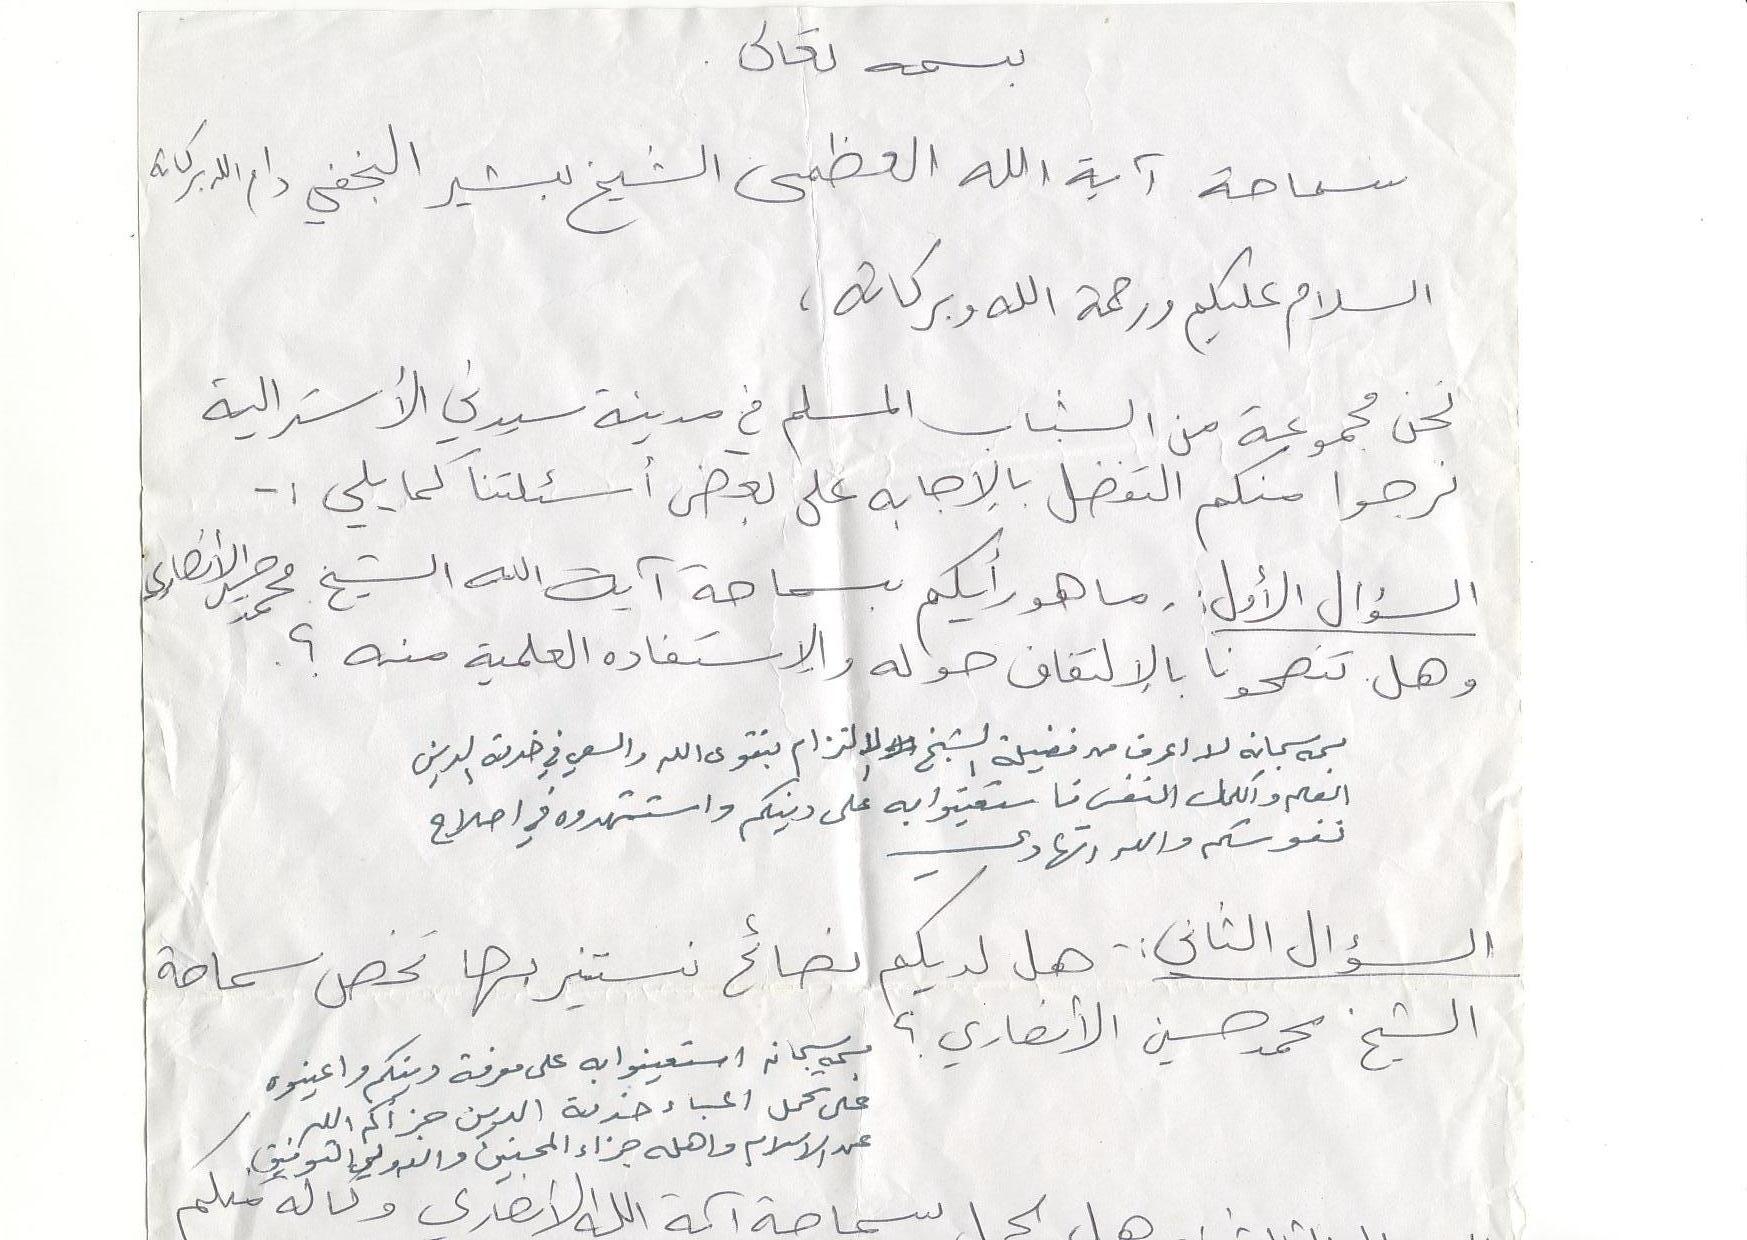 بسمه تعالى
سماحة آية الله العظمى الشيخ بشير النجفي دام الله بركاته
السلام عليكم ورحمة الله وبركاته ،
نحن مجموعة من الشباب المسلم في مدينة سيدني الأسترالية
نرجوا منكم التفضل بالإجابه على بعض أسئلتنا كما يلي :-
السؤال الأول :. ما هو رأيكم بسماحة آية الله الشيخ محمد حسين الأنصاري
وهل تنصحونا بالإلتفاف حوله والإستفاده العلمية منه ؟.
بسمه سبحانه لا اعرف من فضيلة الشيخ الا الالتزام بتقوى الله والسعي في خدمة الدين
العلم واكمال النفس فاستعينوا به على دينكم واسترشدوه في اصلاح
نفوسكم والله الهادي
السؤال الثاني :- هل لديكم نصائح نستنير بها تخص سماحة
الشيخ محمد حسين الأنصاري ؟
بسمه سبحانه استعينوا به على معرفة دينكم واعينوه
على تحمل اعباء خدمة الدين جزاكم الله
عن الاسلام واهله جزاء المحسنين والله ولي التوفيق
هل سماحة آية الله الأنصاري وكالة منكم